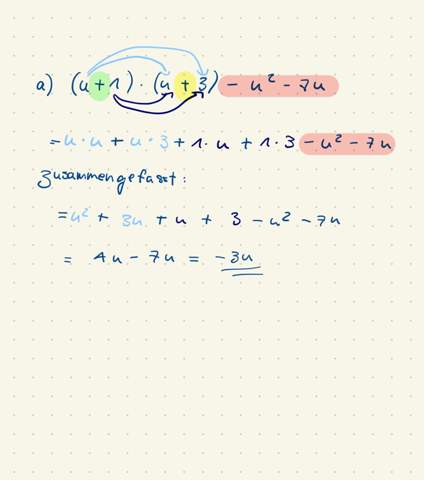 a) (u + 1) · (u + 3) - u² - 7u
= u · u + u · 3 + 1 · u + 1 · 3 - u² - 7u
Zusammengefasst:
= u² + 3u + u + 3 - u² - 7u
= 4u - 7u = -3u